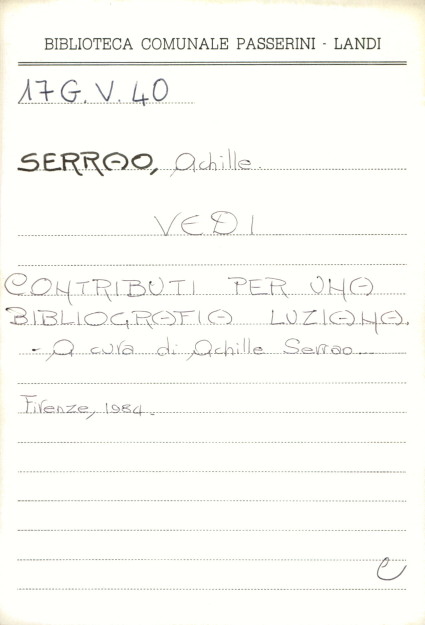 BIBLIOTECA COMUNALE PASSERINI - LANDI
17 G. V. 40
SERRAO, Achille.
VEDI
CONTRIBUTI PER UNA
BIBLIOGRAFIA LUZIANA.
- A cura di Achille Serrao...
Firenze, 1984.
e